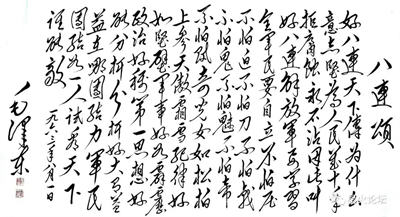 八連頌
好八連天下傳為什么
意志坚為人民几十年
拒腐蚀永不沾因此叫
好八連解放軍要学習
全軍民要自立不怕压
不怕迫不怕刀不怕戟
不怕鬼不怕魅不怕帝
不怕贼奇儿女如松柏
上参天傲霜雪纪律好
如坚壁軍事好如霹雳
政治好称第一思想好
能分析分析好大有益
益在哪团结力軍民
团结如一人试看天下
谁能敌 一九六三年八月一日
毛泽东
化论坛